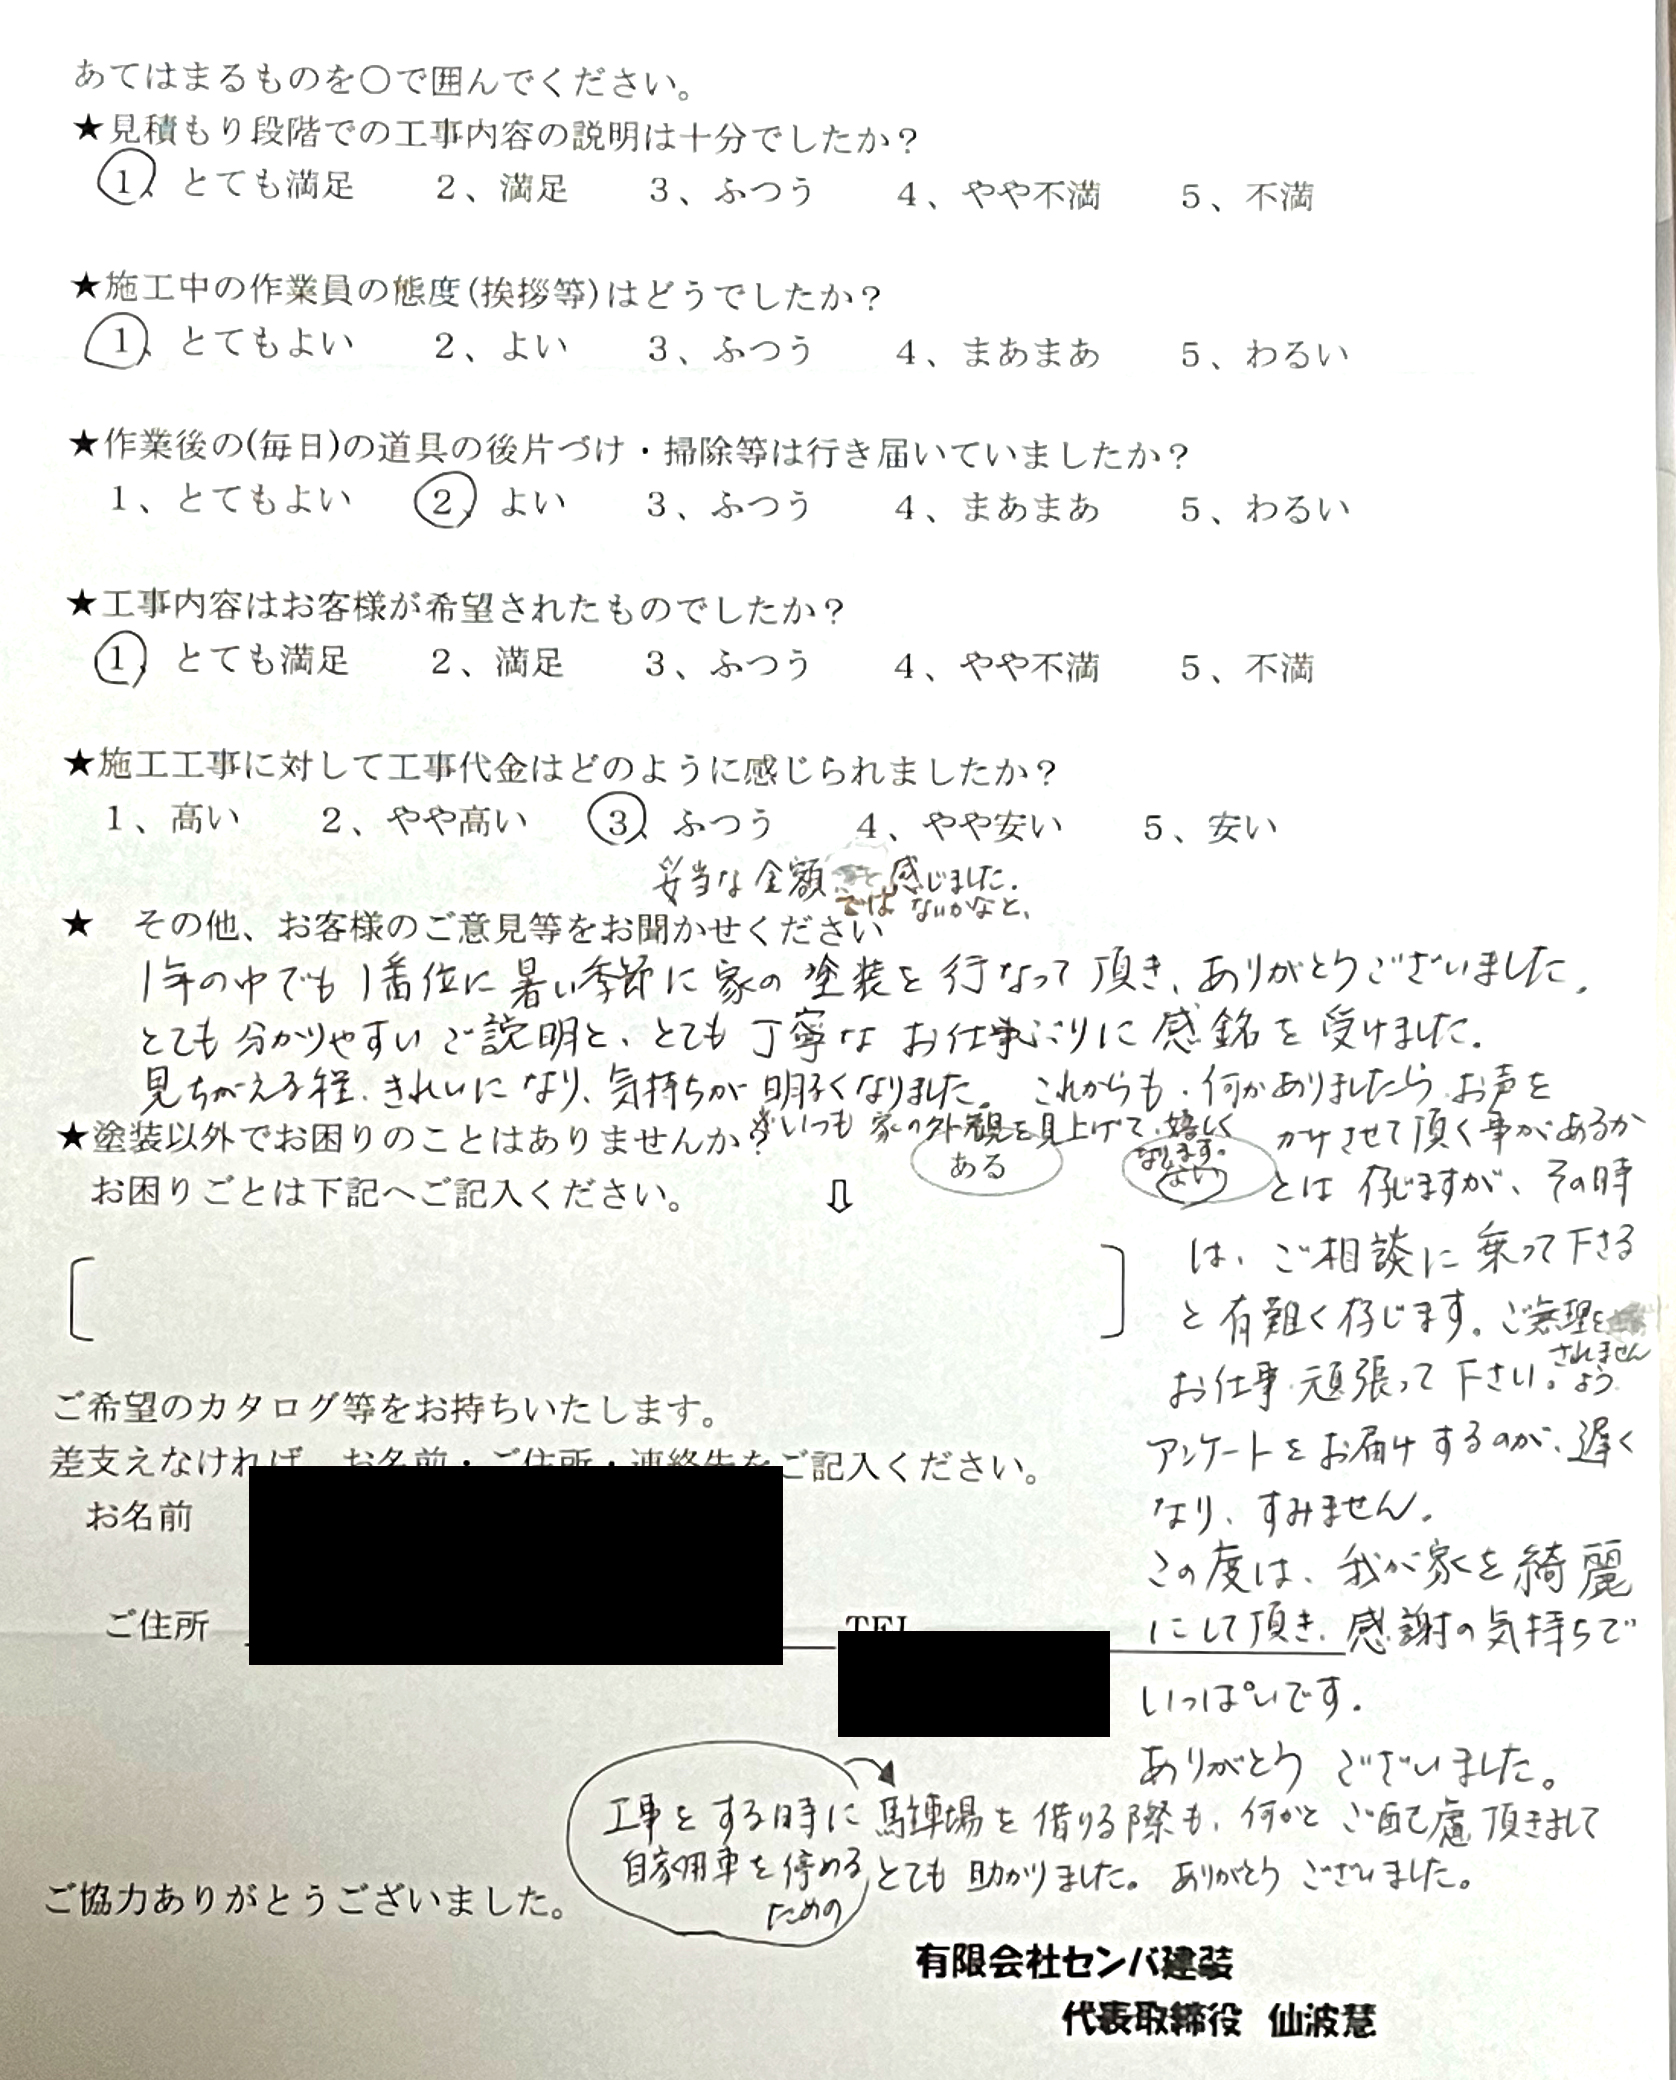 あてはまるものを〇で囲んでください。
★見積もり段階での工事内容の説明は十分でしたか？
1、とても満足　2、満足　3、ふつう　4、やや不満　5、不満
★施工中の作業員の態度(挨拶等)はどうでしたか？
1、とてもよい　2、よい　3、ふつう　4、まあまあ　5、わるい
★作業後の(毎日)の道具の後片づけ・掃除等は行き届いていましたか？
1、とてもよい　2、よい　3、ふつう　4、まあまあ　5、わるい
★工事内容はお客様が希望されたものでしたか？
1、とても満足　2、満足　3、ふつう　4、やや不満　5、不満
★施工工事に対して工事代金はどのように感じられましたか？
1、高い　2、やや高い　3、ふつう　4、やや安い　5、安い
妥当な金額 感じました。
ではないかなと、
★　その他、お客様のご意見等をお聞かせください
1年の中でも1番位に暑い季節に家の塗装を行なって頂き、ありがとうございました。
とても分かりやすいご説明と、とても丁寧なお仕事ぶりに感銘を受けました。
見ちがえる程、きれいになり、気持ちが明るくなりました。これからも、何かありましたら、お声を
※いつも家の外観を見上げて、嬉しく
なります。
かけさせて頂く事があるか
とは存じますが、その時
は、ご相談に乗って下さる
と有難く存じます。ご無理を
されません
よう
お仕事、頑張って下さい。
アンケートをお届けするのが、遅く
なり、すみません。
この度は、我が家を綺麗
にして頂き、感謝の気持ちで
いっぱいです。
ありがとうございました。
★塗装以外でお困りのことはありませんか？　ある　ない
お困りごとは下記へご記入ください。　⇩
ご希望のカタログ等をお持ちいたします。
差支えなければ、お名前・ご住所・連絡先をご記入ください。
お名前
ご住所
TEL
工事をする時に
自家用車を停める
ための
駐車場を借りる際も、何かとご配慮頂きまして
とても助かりました。ありがとうございました。
ご協力ありがとうございました。
有限会社センバ建装
代表取締役　仙波慧